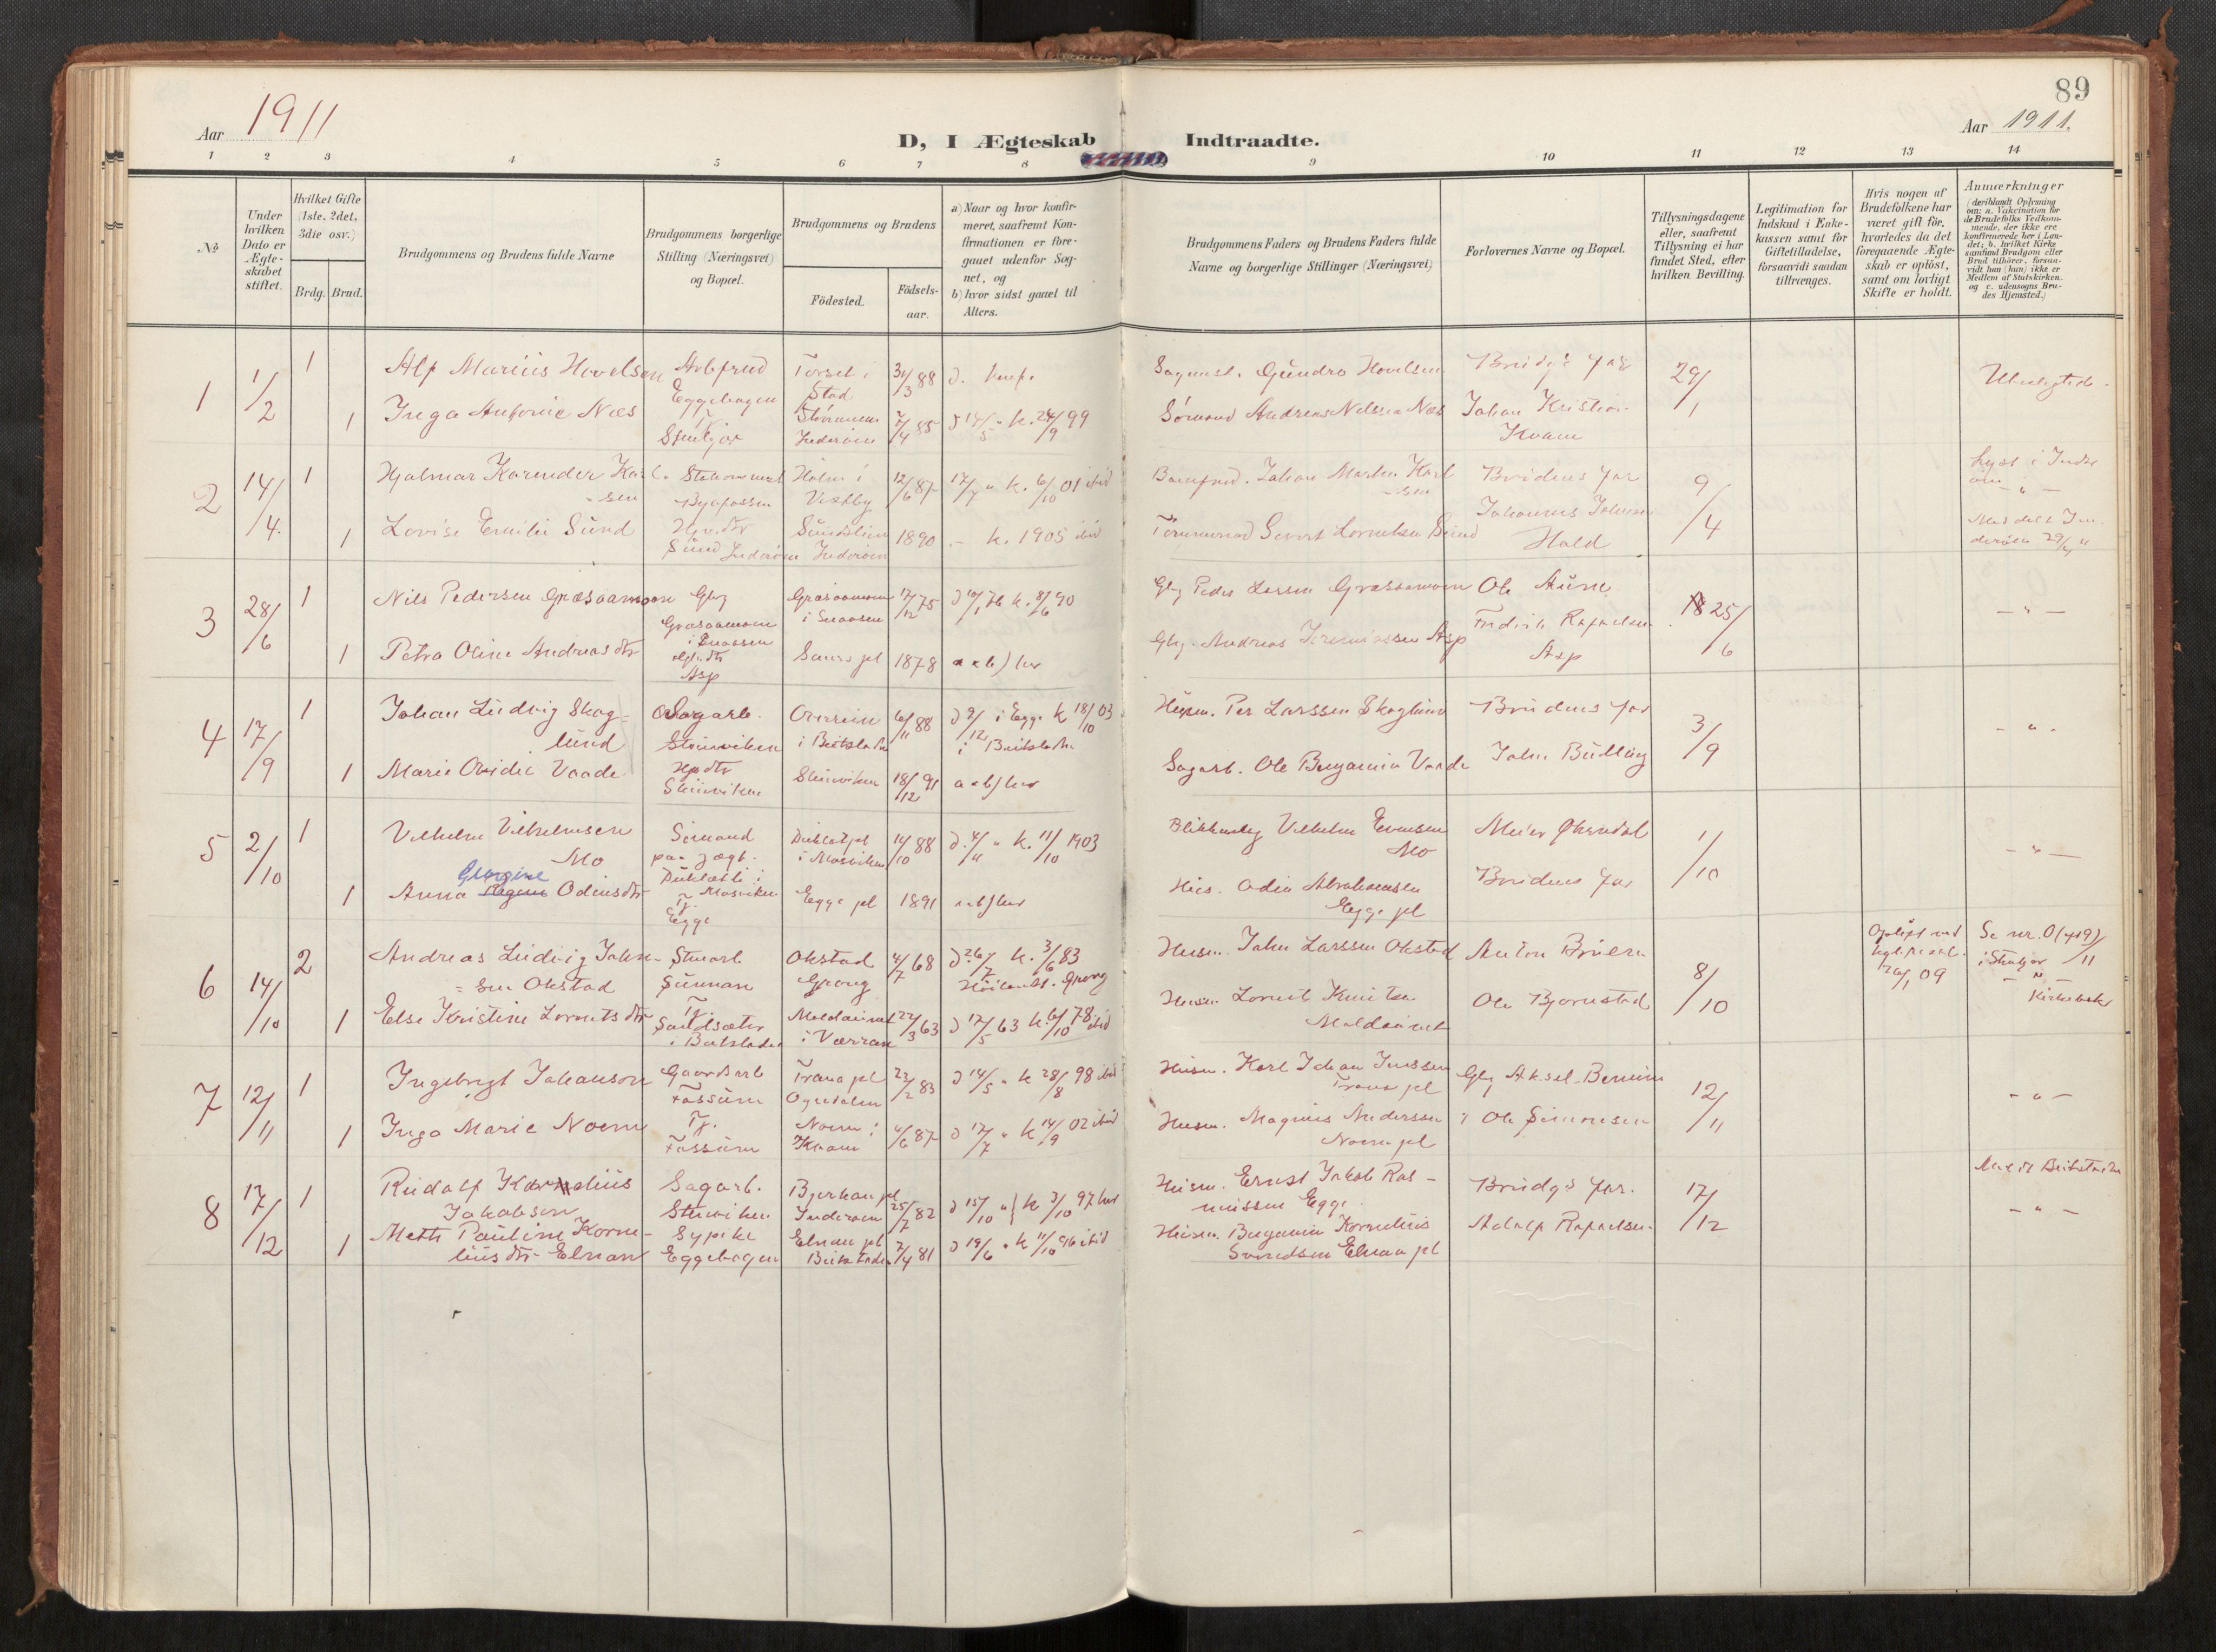 89
Aar 1911
D, I Ægteskab Indtraadte.
Aar 1911.
1 2 3 4 5 6 7 8 9 10 11 12 13 14
No
Under hvilken Dato er Ægteskabet stiftet.
Hvilket Gifte (1ste, 2det, 3die osv.)
Brdg. Brud.
Brudgommens og Brudens fulde Navne
Brudgommens borgerlige Stilling (Næringsvei) og Bopæl.
Brudgommens og Brudens
Födested.
Födsels-aar.
a) Naar og hvor konfirmeret, saafremt Konfirmationen er foregaaet udenfor Sognet, og
b) hvor sidst gaaet til Alters.
Brudgommens Faders og Brudens Faders fulde Navne og borgerlige Stillinger (Næringsvei)
Forlovernes Navne og Bopæl.
Tillysningsdagene eller, saafremt Tillysning ei har fundet Sted, efter hvilken Bevilling.
Legitimation for Indskud i Enkekassen samt for Giftetilladelse, forsaavidt saadan tiltrænges.
Hvis nogen af Brudefolkene har været gift för, hvorledes da det foregaaende Ægteskab er oplöst, samt om lovligt Skifte er holdt.
Anmærkninger (deriblandt Oplysning om: a. Vakcination for de Brudefolks Vedkommende, der ikke ere konfirmerede her i Landet; b. hvilket Kirkesamfund Brudgom eller Brud tilhörer, forsaavidt han (hun) ikke er Medlem af Statskirken. og c. udensogns Brudes Hjemsted.)
1 1/2 1 Alf Marius Hovelsen
Eggebogen Stod 31/3 88
Sagmest. Gundro Hovelsen Brudg's far 29/1
1 Inga Antonie Næs
Stenkjær Inderøen 7/4 85 d 14/5 " k. 24/9 99
Sømand Andreas Nelssen Næs Johan Kristian Kvam
2 14/4. 1 Hjalmar Karender Karlsen
Holm i Vestby 12/6 87 17/7 " k. 6/10 01 ibid
Johan Martin Karlsen Brudens far 9/4
Lyst i Inderøen
1 Lovise Emilie Sund
Sund Inderøen Inderøen 1890 - k. 1905 ibid
Johannes Johnsen Hald
3 28/6 1 Nils Pedersen Græsaamoen Gbr
Græsaamoen i Snaasen Græsaamoen i Snaasen 17/12 75 k. 8/6 90
Gbr Peder Larsen Græsaamoen Ole Aune 25/6
1 Petra Oline Andreasdtr
Asp 1878 a & b) her
Gbr. Andreas Jeremiassen Asp Fredrik Rafaelsen Asp
4 17/9 1 Johan Ludvig Skoglund
Sagarb. Steinviken i Beitstaden 6/11 88 d 9/12 i Egge k 18/10 03 i Beitstaden
Husm. Per Larssen Skoglund Brudens far 3/9
1 Marie Ovidie Vaade
Steinviken Steinviken 18/12 91 a & b) her
Sagarb. Ole Benjamin Vaade John Bulling
5 2/10 1 Vilhelm Vilhelmsen Mo
Sømand paa jægt. i Mosviken 14/10 88 d. 4/11 " k. 11/10 1903
Vilhelm Evensen Mo 1/10
1 Anna Georgine Odinsdtr
Tj. Egge Egge pl 1891 a & b) her
Hus. Odin Abrahamsen Egge pl Brudens far
6 14/10 2 Andreas Ludvig Johnsen Okstad
Sunnan Okstad Grong 4/7 68 d 26/7 k. 3/6 83 Grong
Husm. John Larssen Okstad Anton Bruem 8/10
26/1 09 Se nr. i Stenkjær Kirkebok
1 Else Kristine Lornts dtr
Tj. i Beitstaden i Værran 22/3 63 d 17/5 63 k. 6/10 78 ibid
Husm. Lornts Knutsen Ole Bjørnstad
7 12/11 1 Ingebrigt Johanson
Gaardsarb Fossum Trana pl Ogndalen 23/2 83 d 14/5 " k 28/8 98 ibid
Husm. Karl Johan Jenssen Trana pl Gbr Aksel Benum 12/11
1 Inga Marie Noem
Tj. Fossum Noem i Kvam 4/6 87 d 17/7 " k 14/9 02 ibid
Husm. Magnus Anderssen Noem pl " Ole Simonsen
8 17/12 1 Rudolf Kornelius Jakobsen
Sagarb. Stenviken Inderøen 25/7 82 d 15/10 " k 3/10 97 her
Husm. Ernst Jakob Rasmussen Egge Brudg's far. 17/12
1 Mette Pauline Korneliusdtr Elnan
Sypike Eggebogen Elnan pl Beitstaden 7/4 81 d 19/6 " k 11/10 96 ibid
Husm. Benjamin Kornelius Svendsen Elnan pl Adolf Rafaelsen